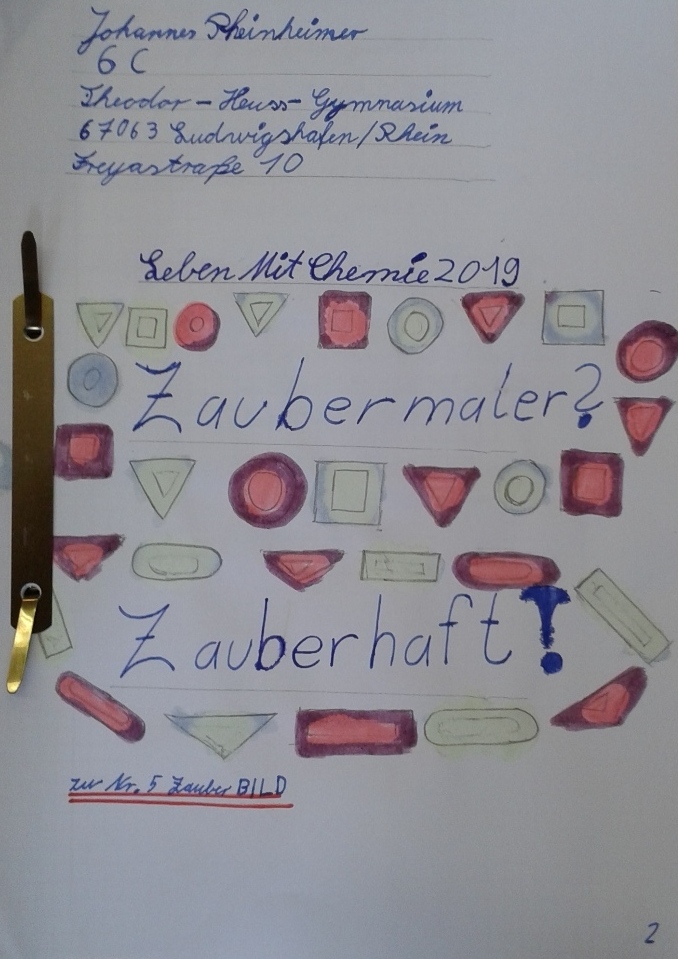 Johannes Rheinheimer
6 C
Theodor - Heuss - Gymnasium
67063 Ludwigshafen/Rhein
Freyastraße 10
Leben Mit Chemie 2019
Zaubermaler?
Zauberhaft!
zu Nr. 5 Zauber BILD
2